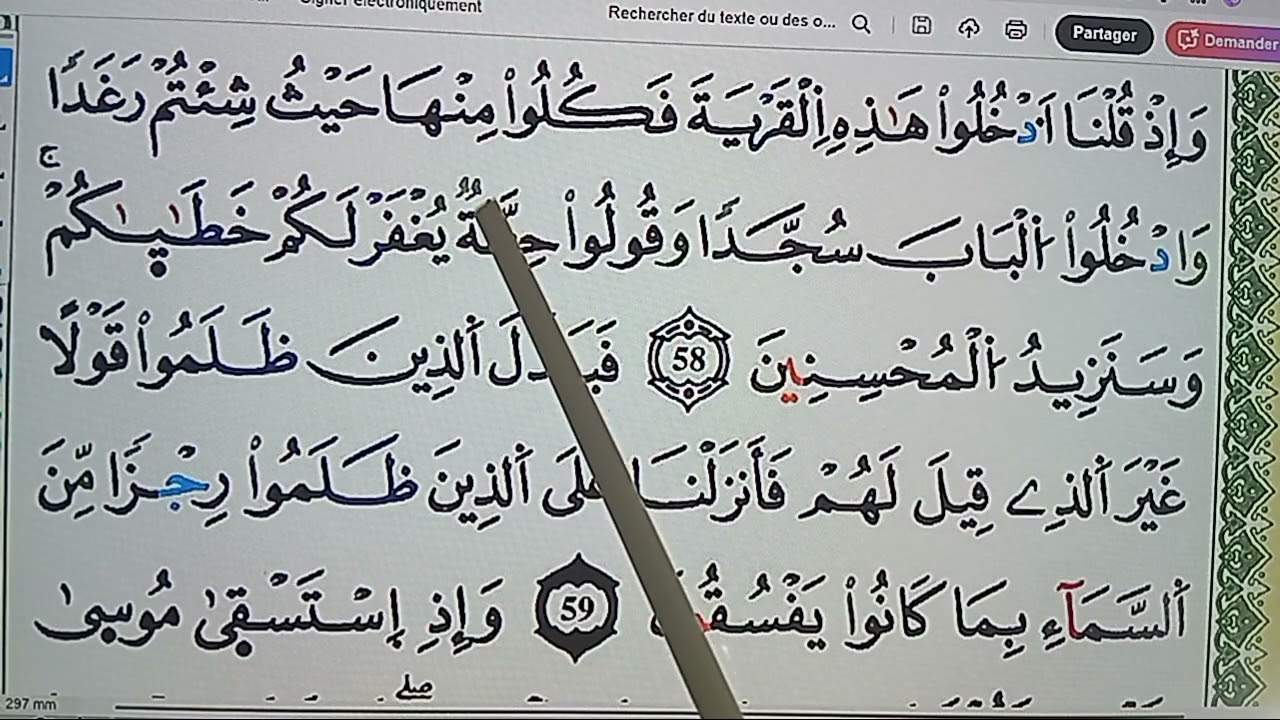 Signer électroniquement
Rechercher du texte ou des o...
Partager
Demander
وَإِذْ قُلْنَا اَدْخُلُواْ هَٰذِهِ اِ۬لْقَرْيَةَ فَكُلُواْ مِنْهَا حَيْثُ شِئْتُمْ رَغَداٗ
وَادْخُلُواْ الْبَابَ سُجَّداٗ وَقُولُواْ حِطَّةٞ يُغْفَرْ لَكُمْ خَطَٰيَٰكُمْۖ ج
وَسَنَزِيدُ اُ۬لْمُحْسِنِينَ 58 فَبَدَّلَ اَ۬لذِينَ ظَلَمُواْ قَوْلاً
غَيْرَ اَ۬لذِے قِيلَ لَهُمْ فَأَنزَلْنَا عَلَى اَ۬لذِينَ ظَلَمُواْ رِجْزاٗ مِّنَ
اَ۬لسَّمَآءِ بِمَا كَانُواْ يَفْسُقُونَ 59 وَإِذِ اِسْتَسْقٜىٰ مُوسٜىٰ
صلے
297 mm